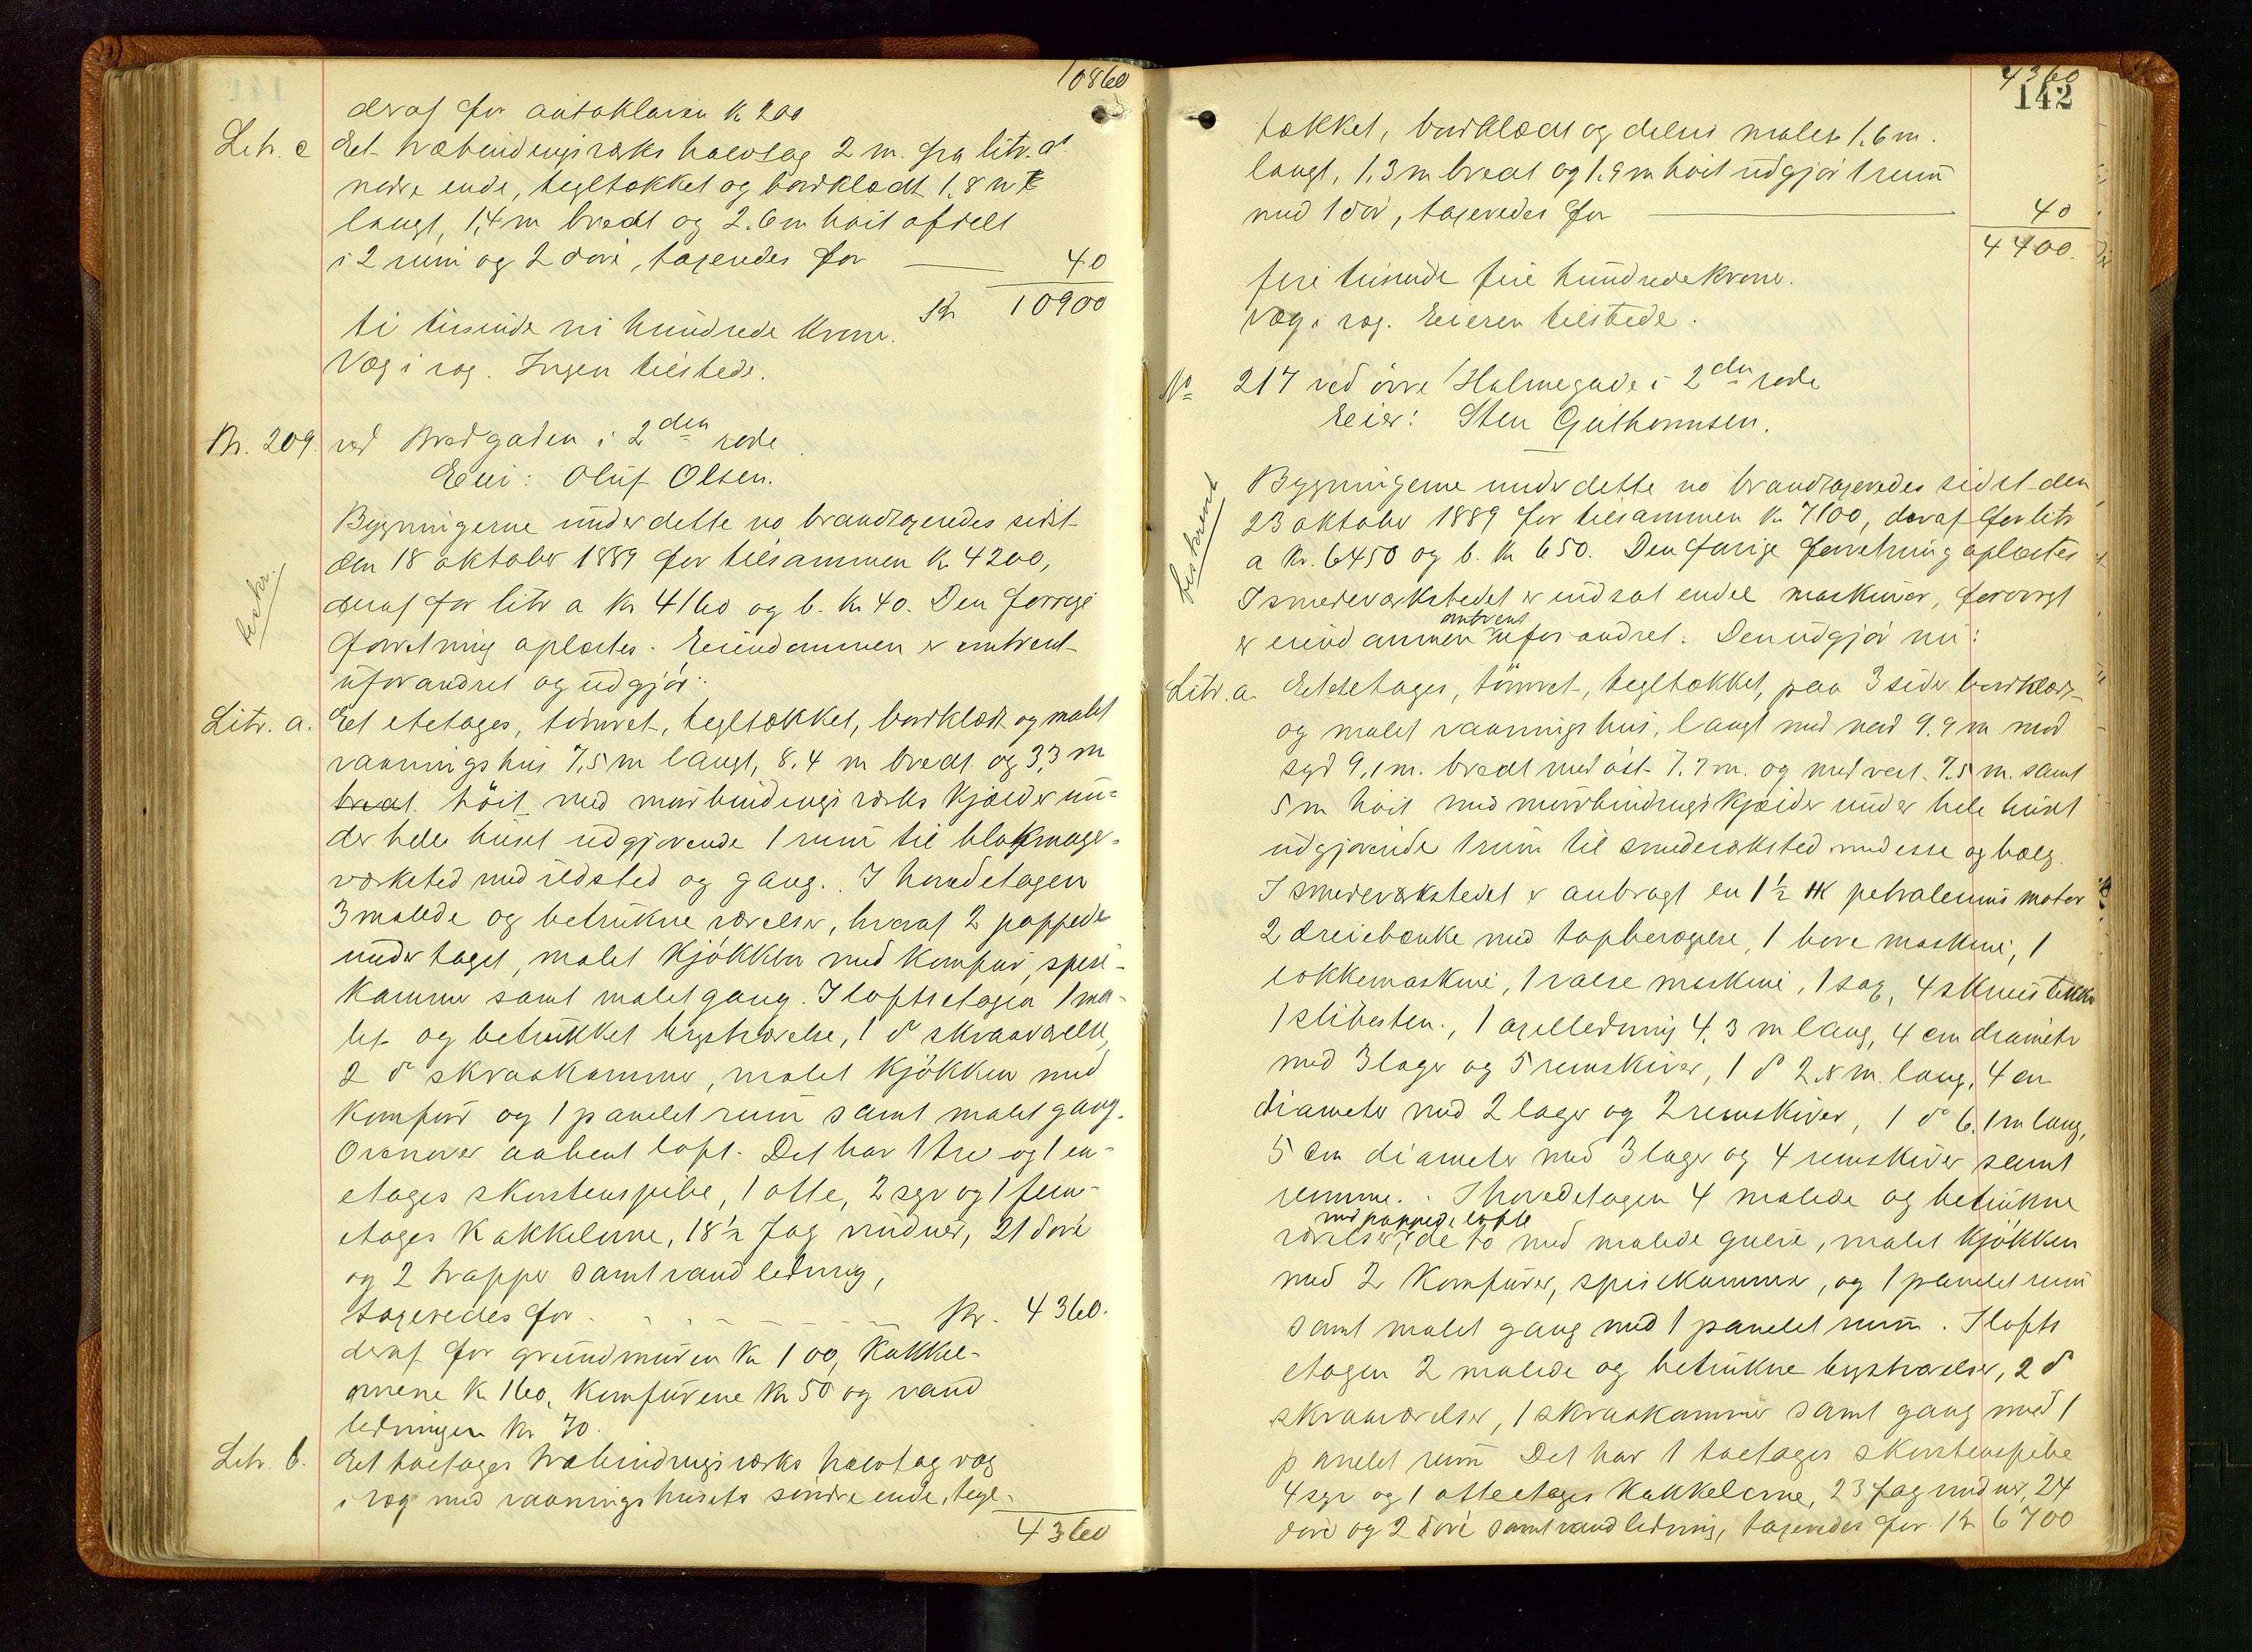 10860
deraf for autoklaven Kr 200
Litr. c Et træbindingsværks halvtag 2 m. fra litr. a's
nedre ende, tegltækket og bordklædt 1,8 m
langt, 1,4 m bredt og 2.6 m høit afdelt
i 2 rum og 2 døre, taxeredes for — 40
Kr 10900
ti tusinde ni hundrede kroner.
Væg i væg. Ingen tilstede.
Nr. 209. ved Bredgaden i 2den rode
Eier: Oluf Olsen.
beskr.
Bygningerne under dette no brandtaxeredes sidst
den 18 oktober 1889 for tilsammen Kr 4200,
deraf for litr a Kr 4160 og b. Kr 40. Den forrige
forretning oplæstes. Eiendommen er omtrent
uforandret og udgjør:
Litr. a. Et etetages, tømret, tegltækket, bordklædt og malet
vaaningshus 7,5 m langt, 8.4 m bredt og 3,3 m
bredt høit med murbindingsværks kjælder un=
der hele huset udgjørende 1 rum til blokmager=
værksted med ildsted og gang. I hovedetagen
3 malede og betrukne værelser, hvoraf 2 pappede
under taget, malet kjøkken med komfur, spise-
kammer samt malet gang. I loftsetagen 1 ma-
let og betrukket kvistværelse, 1 do skraaværelse,
2 do skraakammer, malet kjøkken med
komfur og 1 panelet rum samt malet gang.
Ovenover aabent loft. Det har 1 tre og 1 en-
etages skorstenspibe, 1 otte, 2 syv og 1 fem-
etages kakkelovne, 18 ½ fag vinduer, 21 døre
og 2 trapper samt vandledning,
taxeredes for . - - - - - Kr. 4360.
deraf for grundmuren Kr 100, kakkel-
ovnene Kr 160, komfurene Kr 50 og vand
ledningen Kr 70.
Litr. b. Et toetages træbindingsværks halvtag væg
i væg med vaaningshusets søndre ende, tegl-
4360
4360
142
tækket, bordklædt og delvis malet 1.6 m.
langt, 1,3 m bredt og 1.9 m høit udgjør 1 rum
med 1 dør, taxeredes for — 40
4400.
fire tusinde fire hundrede kroner.
Væg i væg. Eieren tilstede.
No 217 ved øvre Holmegade i 2den rode
Eier: Sten Guthormsen.
beskrevet
Bygningerne under dette no brandtaxeredes sidst den
23 oktober 1889 for tilsammen Kr 7100, deraf for litr
a Kr. 6450 og b. Kr 650. Den forige forretning oplæstes
I smedeværkstedet er indsat endel maskiner, forøvrigt
omtrent
er eiendommen uforandret. Den udgjør nu:
Litr. a. Et etetages, tømret, tegltækket, paa 3 sider bordklædt
og malet vaaningshus, langt mod nord 9.9 m mod
syd 9,1 m. bredt mod øst 7.7 m. og mod vest 7.5 m. samt
5 m høit med murbindingskjælder under hele huset
udgjørende 1 rum til smedeværksted med esse og bælg.
I smedeværkstedet er anbragt en 1 ½ HK petroleums motor
2 dreiebænke med 1 boremaskine, 1
lokkemaskine, 1 valse maskine, 1 sag, 4 skruestikker
1 slibesten., 1 axelledning 4.3 m lang, 4 cm diameter
med 3 lager og 5 remskiver, 1 do 2.8 m. lang, 4 cm
diameter med 2 lager og 2 remskiver, 1 do 6.1 m lang,
5 cm diameter med 3 lager og 4 remskiver samt
remme. I hovedetagen 4 malede og betrukne
med pappede lofte
værelser, de to med malede gulve, malet kjøkken
med 2 komfurer, spisekammer, og 1 panelet rum
samt malet gang med 1 panelet rum. I lofts
etagen 2 malede og betrukne kvistværelser, 2 do
skraaværelser, 1 skraakammer samt gang med 1
panelet rum Det har 1 toetages skorstenspibe
4 syv og 1 otteetages kakkelovne, 23 fag vinduer, 24
døre og 2 samt vandledning, taxeredes for Kr 6700